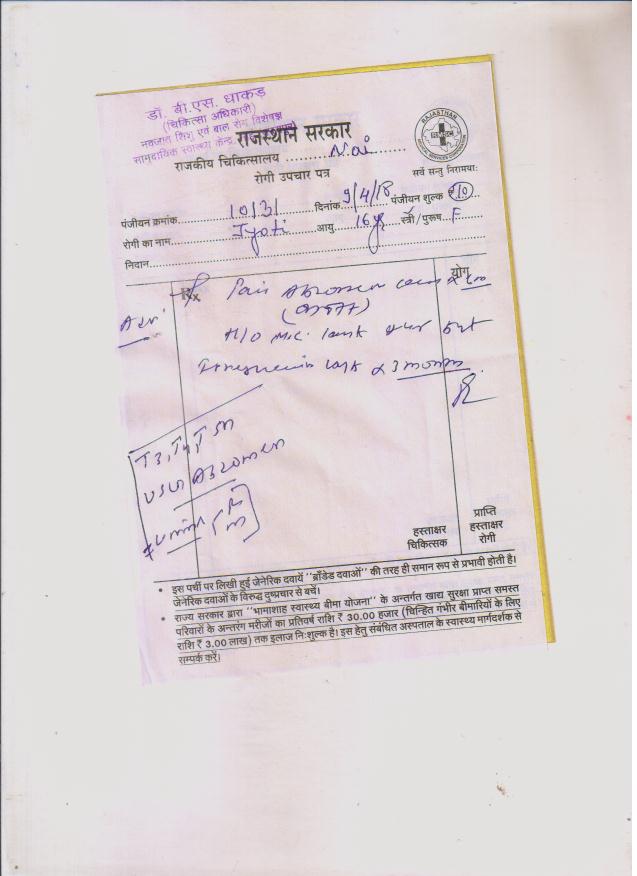 डॉ. बी.एस. धाकड़
(चिकित्सा अधिकारी)
नवजात शिशु एवं बाल रोग विशेषज्ञ
सामुदायिक स्वास्थ्य केन्द्र,
राजस्थान सरकार
RAJASTHAN
MEDICAL SERVICES CORPORATION
राजकीय चिकित्सालय ........... Nai
रोगी उपचार पत्र
सर्वे सन्तु निरामयाः
पंजीयन क्रमांक 10131 दिनांक 9/4/18 पंजीयन शुल्क ₹10
रोगी का नाम Jyoti आयु 16 yr स्त्री / पुरुष F
निदान
Rx
योग
Adv.
Pain Abdomen
H/O
last 3 months
T3, T4, TSH
USG Abdomen
Urine R M
हस्ताक्षर
चिकित्सक
प्राप्ति
हस्ताक्षर
रोगी
• इस पर्ची पर लिखी हुई जेनेरिक दवायें "ब्राँडेड दवाओं" की तरह ही समान रूप से प्रभावी होती है।
जेनेरिक दवाओं के विरुद्ध दुष्प्रचार से बचें।
• राज्य सरकार द्वारा "भामाशाह स्वास्थ्य बीमा योजना" के अन्तर्गत खाद्य सुरक्षा प्राप्त समस्त
परिवारों के अन्तरंग मरीजों का प्रतिवर्ष राशि ₹ 30.00 हजार (चिन्हित गंभीर बीमारियों के लिए
राशि ₹ 3.00 लाख) तक इलाज निःशुल्क है। इस हेतु संबंधित अस्पताल के स्वास्थ्य मार्गदर्शक से
सम्पर्क करें।